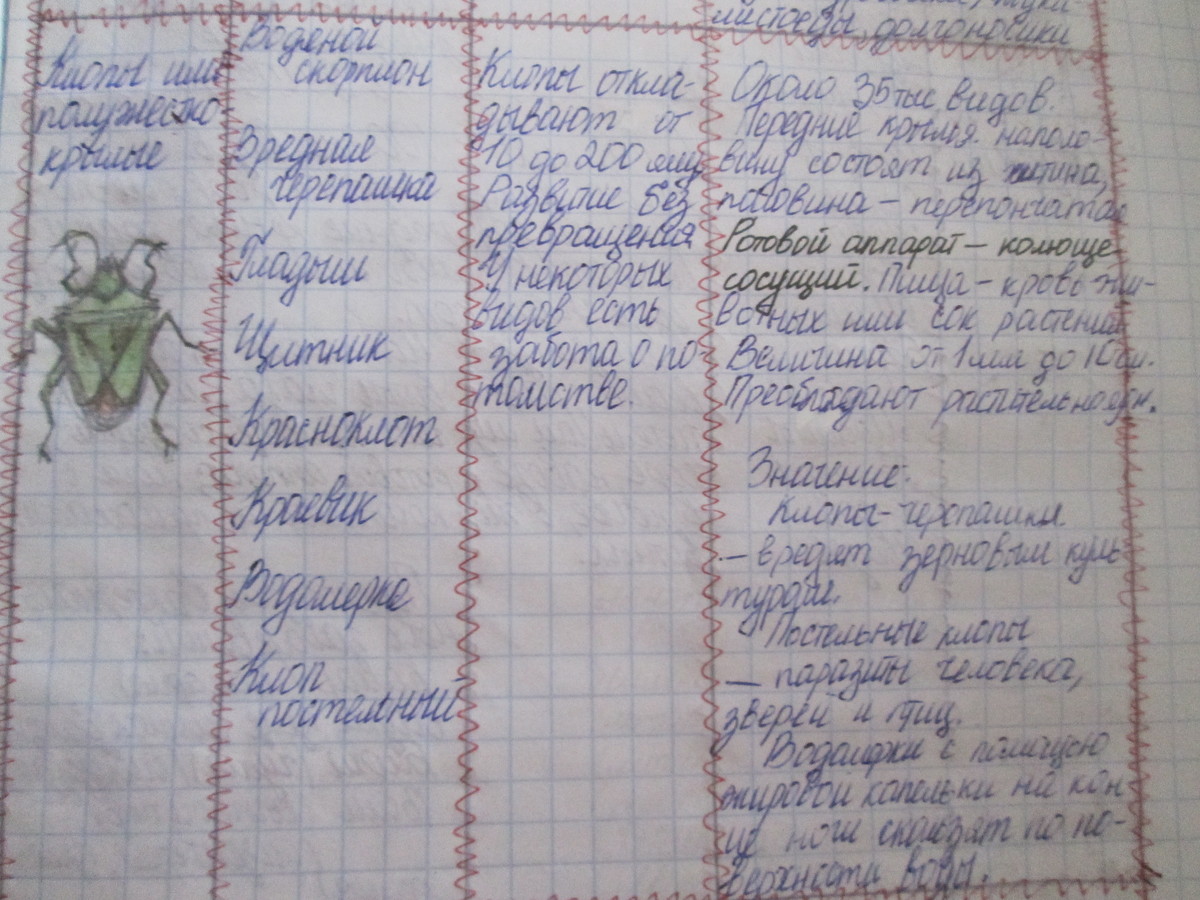 листоеды, долгоносики
Клопы или
полужестко-
крылые
Водяной
скорпион
Вредная
черепашка
Гладыш
Щитник
Красноклоп
Краевик
Водомерка
Клоп
постельный
Клопы откла-
дывают от
10 до 200 яиц
Развитие без
превращения
У некоторых
видов есть
забота о по-
томстве.
Около 35 тыс видов.
Передние крылья наполо-
вину состоят из хитина,
половина – перепончатая
Ротовой аппарат – колюще
сосущий. Пища – кровь жи-
вотных или сок растений
Величина от 1 мм до 10 см.
Преобладают растительнояд.
Значение:
Клопы-черепашки
– вредят зерновым куль
турам.
Постельные клопы
– паразиты человека,
зверей и птиц.
Водомерки с помощью
жировой капельки на кон-
це ноги скользят по по-
верхности воды.